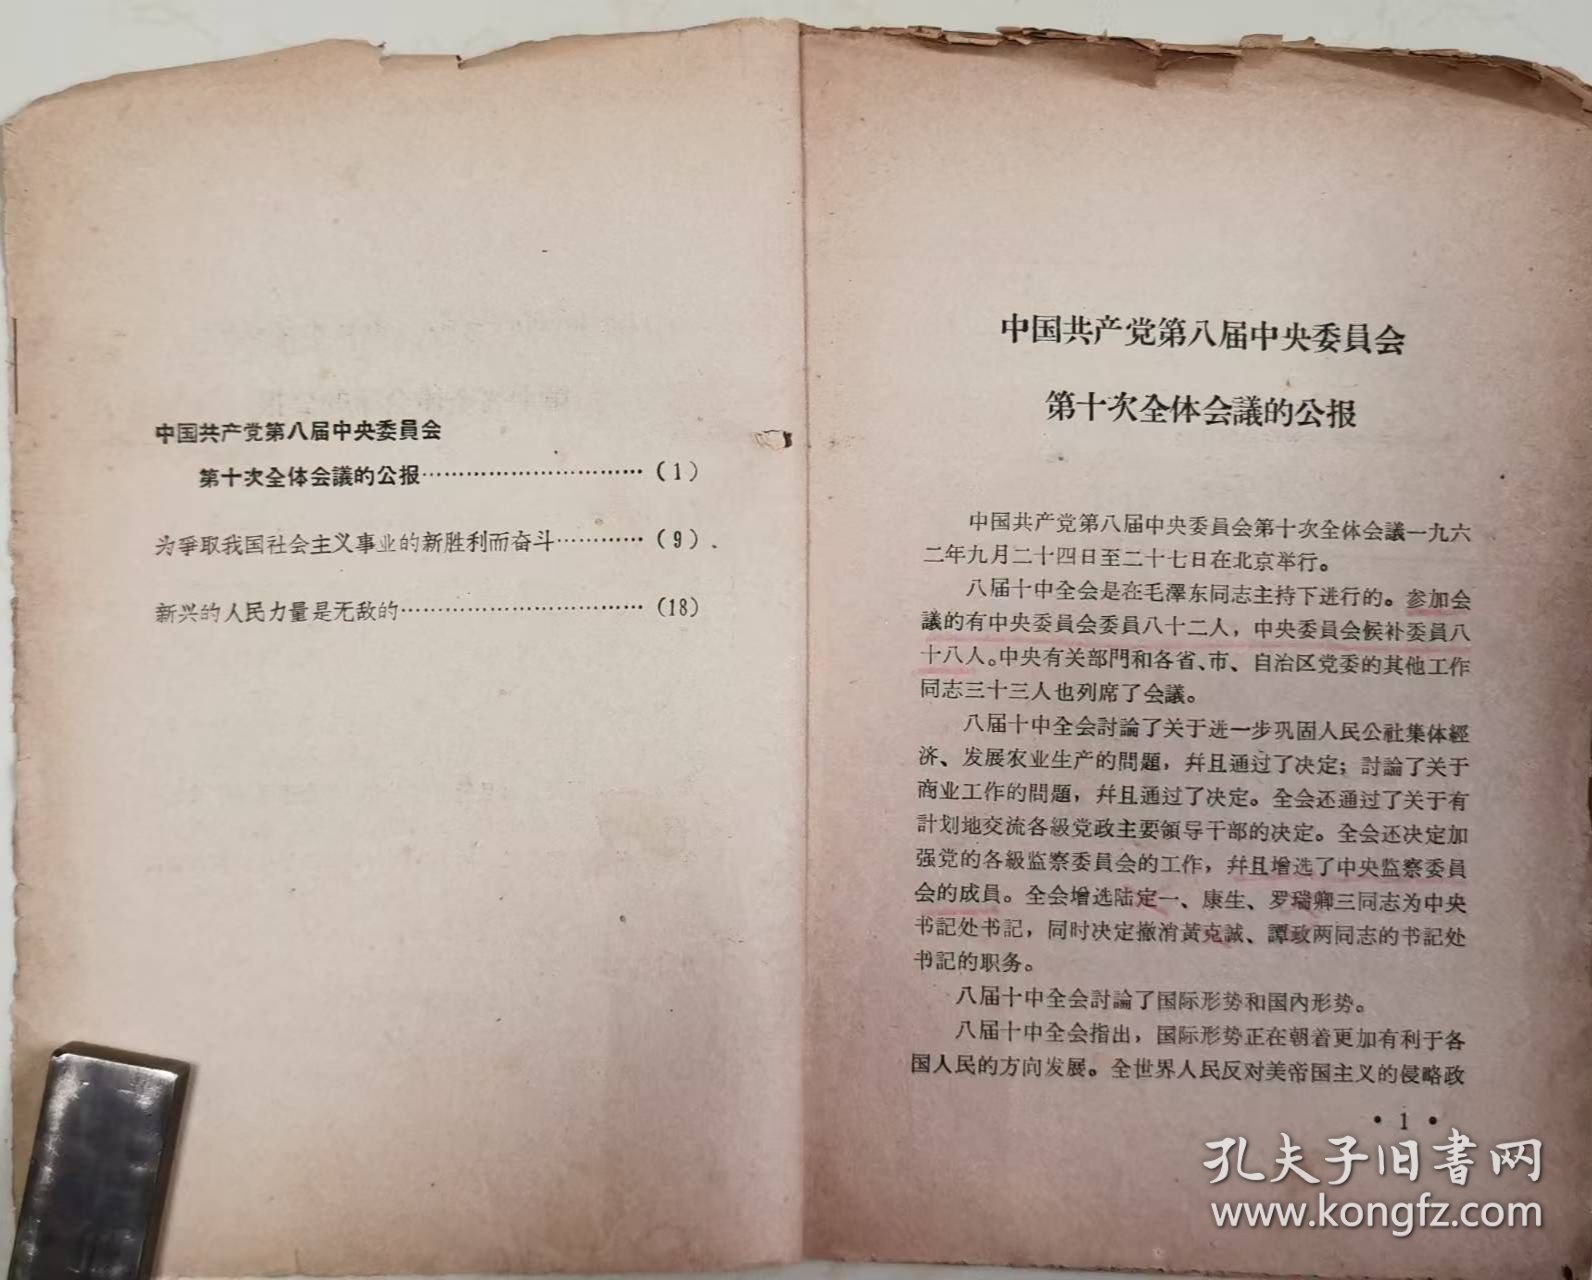 中国共产党第八届中央委員会
第十次全体会議的公报…………………………(1)
为爭取我国社会主义事业的新胜利而奋斗…………(9)
新兴的人民力量是无敌的……………………………(18)
中国共产党第八届中央委員会
第十次全体会議的公报
中国共产党第八届中央委員会第十次全体会議一九六
二年九月二十四日至二十七日在北京举行。
八届十中全会是在毛澤东同志主持下进行的。参加会
議的有中央委員会委員八十二人，中央委員会候补委員八
十八人。中央有关部門和各省、市、自治区党委的其他工作
同志三十三人也列席了会議。
八届十中全会討論了关于进一步巩固人民公社集体經
济、发展农业生产的問題，幷且通过了决定；討論了关于
商业工作的問題，幷且通过了决定。全会还通过了关于有
計划地交流各級党政主要領导干部的决定。全会还决定加
强党的各級监察委員会的工作，幷且增选了中央监察委員
会的成員。全会增选陆定一、康生、罗瑞卿三同志为中央
书記处书記，同时决定撤消黃克誠、譚政两同志的书記处
书記的职务。
八届十中全会討論了国际形势和国內形势。
八届十中全会指出，国际形势正在朝着更加有利于各
国人民的方向发展。全世界人民反对美帝国主义的侵略政
• 1 •
孔夫子旧書网
www.kongfz.com